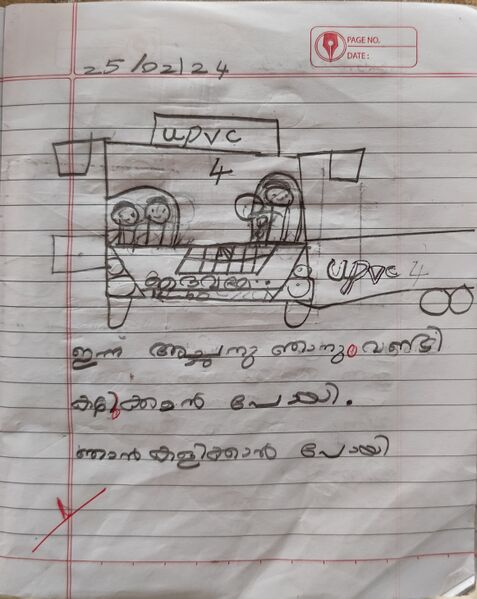 PAGE NO.
DATE:
25/02/24
upvc
4
upvc 4
ഇന്ന് അച്ചനു ഞാനും വണ്ടി
കഴുകാൻ പോയി.
ഞാൻ കളിക്കാൻ പോയി